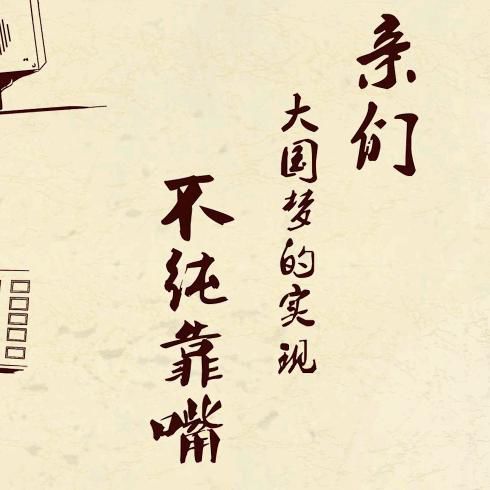 亲们
大国梦的实现
不纯靠嘴